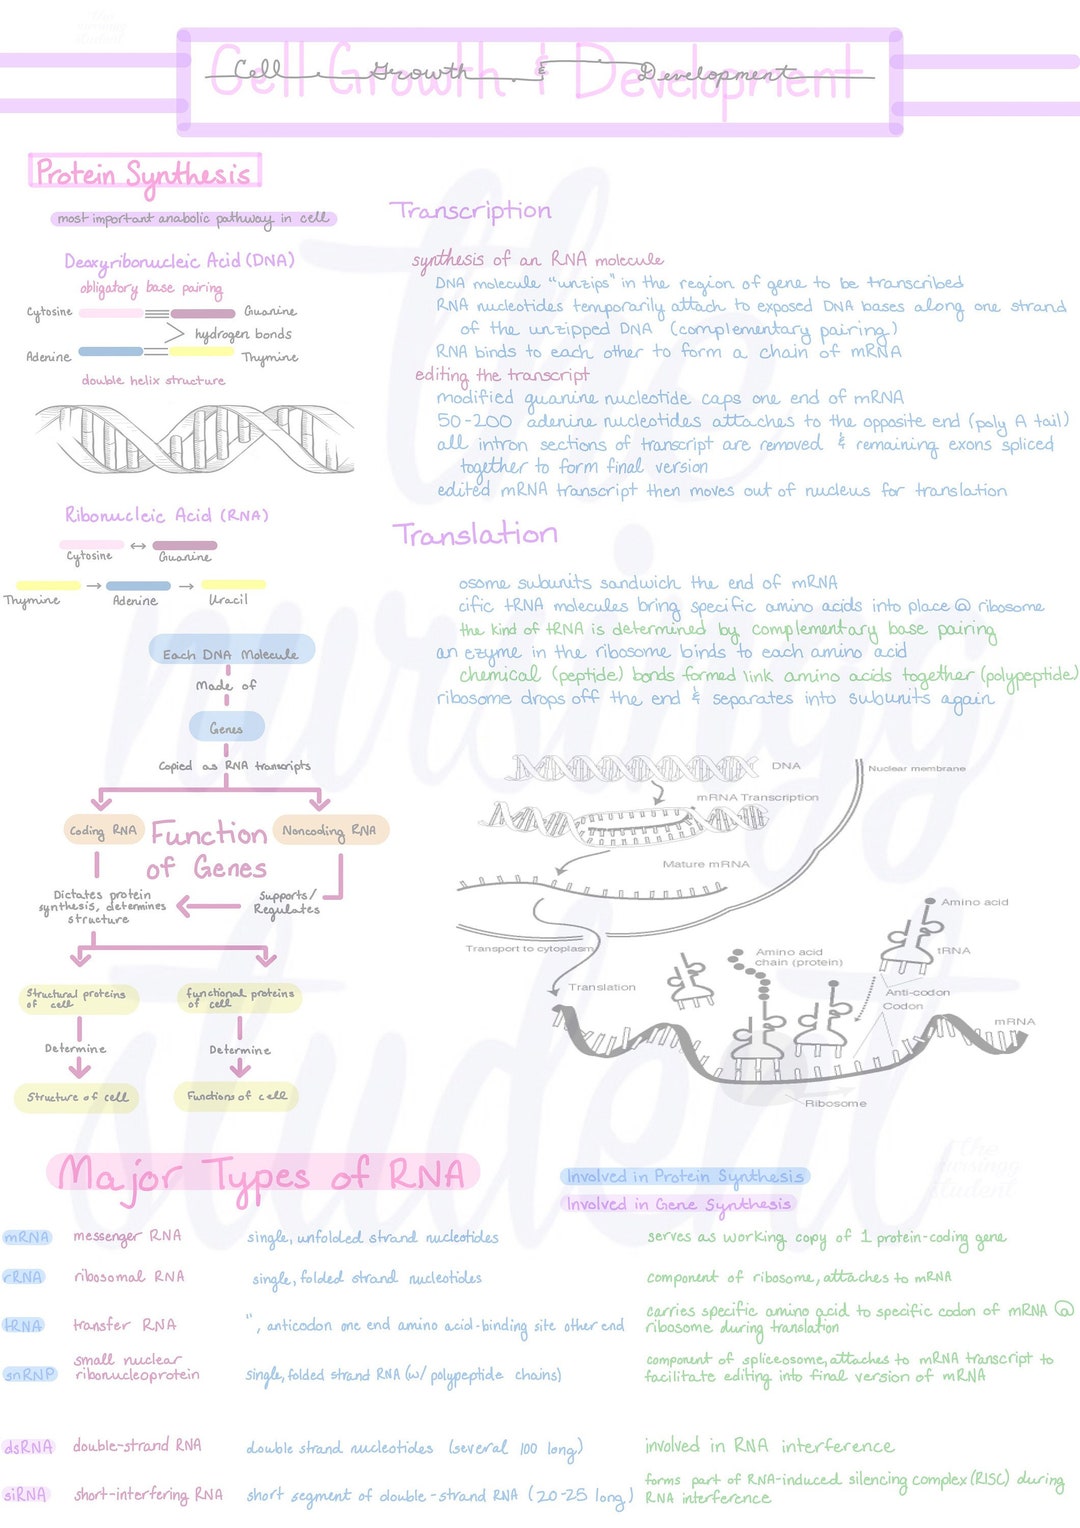 the
nursingg
student
Cell Growth & Development
Cell Growth & Development
Protein Synthesis
most important anabolic pathway in cell
Deoxyribonucleic Acid (DNA)
obligatory base pairing
Cytosine Guanine
hydrogen bonds
Adenine Thymine
double helix structure
Ribonucleic Acid (RNA)
Cytosine ↔ Guanine
Thymine → Adenine → Uracil
Each DNA Molecule
Made of
Genes
Copied as RNA transcripts
Coding RNA
Noncoding RNA
Function
of Genes
Dictates protein
synthesis, determines
structure
Supports/
Regulates
Structural proteins
of cell
functional proteins
of cell
Determine
Determine
Structure of cell
Functions of cell
Transcription
synthesis of an RNA molecule
DNA molecule "unzips" in the region of gene to be transcribed
RNA nucleotides temporarily attach to exposed DNA bases along one strand
of the unzipped DNA (complementary pairing)
RNA binds to each other to form a chain of mRNA
editing the transcript
modified guanine nucleotide caps one end of mRNA
50-200 adenine nucleotides attaches to the opposite end (poly A tail)
all intron sections of transcript are removed & remaining exons spliced
together to form final version
edited mRNA transcript then moves out of nucleus for translation
Translation
osome subunits sandwich the end of mRNA
cific tRNA molecules bring specific amino acids into place @ ribosome
the kind of tRNA is determined by complementary base pairing
an ezyme in the ribosome binds to each amino acid
chemical (peptide) bonds formed link amino acids together (polypeptide)
ribosome drops off the end & separates into subunits again
DNA
Nuclear membrane
mRNA Transcription
Mature mRNA
Transport to cytoplasm
Amino acid
tRNA
Amino acid
chain (protein)
Translation
Anti-codon
Codon
mRNA
Ribosome
the
nursingg
student
Major Types of RNA
Involved in Protein Synthesis
Involved in Gene Synthesis
the
nursingg
student
mRNA messenger RNA single, unfolded strand nucleotides serves as working copy of 1 protein-coding gene
rRNA ribosomal RNA single, folded strand nucleotides component of ribosome, attaches to mRNA
tRNA transfer RNA ", anticodon one end amino acid-binding site other end carries specific amino acid to specific codon of mRNA @
ribosome during translation
snRNP small nuclear
ribonucleoprotein single, folded strand RNA (w/ polypeptide chains) component of spliceosome, attaches to mRNA transcript to
facilitate editing into final version of mRNA
dsRNA double-strand RNA double strand nucleotides (several 100 long) involved in RNA interference
siRNA short-interfering RNA short segment of double-strand RNA (20-25 long) forms part of RNA-induced silencing complex (RISC) during
RNA interference